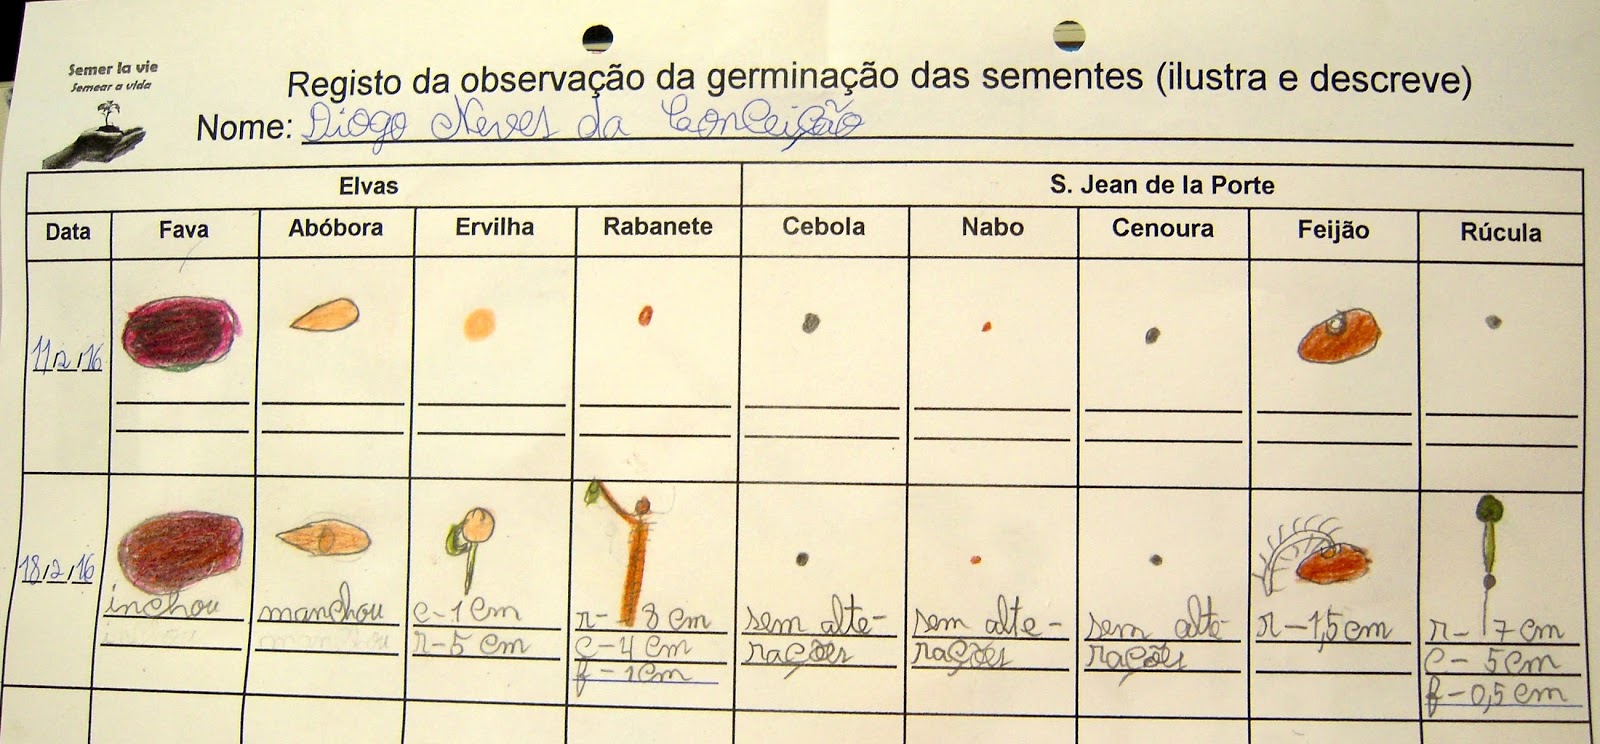 Semer la vie
Semear a vida
Registo da observação da germinação das sementes (ilustra e descreve)
Nome: Diogo Neves da Conceição
Elvas S. Jean de la Porte
Data Fava Abóbora Ervilha Rabanete Cebola Nabo Cenoura Feijão Rúcula
11/2/16
18/2/16
inchou
manchou
c-1cm
r-5cm
r-8cm
c-4cm
f-1cm
sem alte-
rações
sem alte-
rações
sem alte-
rações
r-1,5cm
r-7cm
c-5cm
f-0,5cm